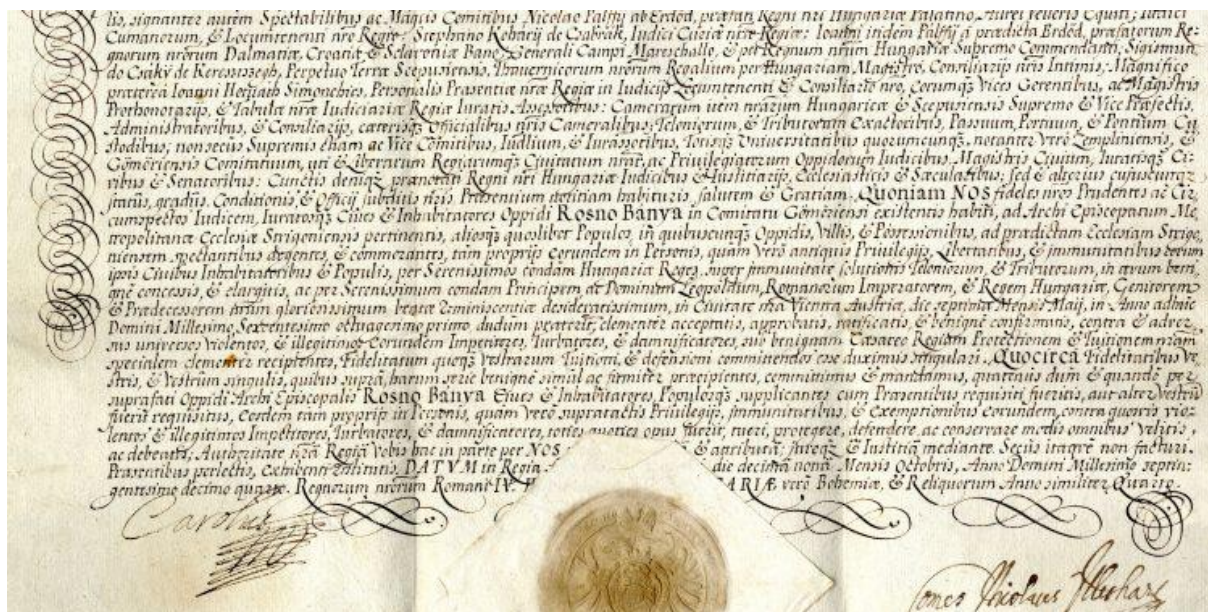 lis, signanter autem Spectabilibus ac Magcis Comitibus Nicolao Palffÿ ab Erdöd, præfati Regni nri Hungariæ Palatino, Aurei Velleris Equiti, Iudici
Cumanorum, & Locumtenenti nro Regio: Stephano Koharÿ de Csabrak, Iudici Curiæ nræ Regiæ: Ioanni itidem Palffÿ à prædicta Erdöd, præfatorum Re-
gnorum nrorum Dalmatiæ, Croatiæ & Sclavoniæ Bano, Generali Campi Mareschallo, & per Regnum nrum Hungariæ Supremo Commendanti, Sigismun-
do Csákÿ de Keresszegh, Perpetuo Terræ Scepusiensis, Thavernicorum nrorum Regalium per Hungariam Magistro, Consiliarijs nris Intimis, Magnifico
præterea Ioanni Horvath Simonchics, Personalis Præsentiæ nræ Regiæ in Iudicijs Locumtenenti & Consiliario nro, eorumq3 Vices Gerentibus, ac Magistris
Prothonotarijs, & Tabulæ nræ Iudiciariæ Regiæ Iuratis Assessoribus: Camerarum item nrarum Hungaricæ & Scepusiensis Supremo & Vice Præfectis,
Administratoribus, & Consiliarijs, cæterisq3 Officialibus nris Cameralibus; Teloniorum, & Tributorum Exactoribus, Passuum, Portuum, & Pontium Cu-
stodibus; non secus Supremis etiam ac Vice Comitibus, Iudlium, & Iurassoribus, Totisq3 Universitatibus quorumcunq3, notanter verò Zempliniensis, &
Gömöriensis Comitatuum, uti & Liberarum Regiarumq3 Civitatum nrar, ac Privilegiatorum Oppidorum Iudicibus, Magistris Civium, Iuratisq3 Ci-
vibus & Senatoribus: Cunctis deniq3 prænotati Regni nri Hungariæ Iudicibus & Iustitiarijs, Ecclesiasticis & Sæcularibus; sed & alterius cujuscunq3
status, gradus, Conditionis, & Officij subditis nris Præsentium notitiam habituris salutem & Gratiam. Quoniam NOS fideles nros Prudentes ac Cir-
cumspectos Iudicem, Iuratosq3 Cives & Inhabitatores Oppidi Rosno Banya in Comitatu Gömöriensi existentis habiti, ad Archi Episcopatum Me-
tropolitanæ Ecclesiæ Strigoniensis pertinentis, aliosq3 quoslibet Populos, in quibuscunq3 Oppidis, Villis, & Possessionibus, ad prædictam Ecclesiam Strigo-
niensem spectantibus degentes, & commorantes, tam proprijs eorundem in Personis, quam verò antiquis Privilegijs, Libertatibus, & immunitatibus eorum
ipsis Civibus Inhabitatoribus & Populis, per Serenissimos condam Hungariæ Reges, super immunitate solutionis Teloniorum, & Tributorum, in ævum beni-
gnè concessis, & elargitis, ac per Serenissimum condam Principem ac Dominum Leopoldum, Romanorum Imperatorem, & Regem Hungariæ, Genitorem
& Prædecessorem nrum gloriosissimum beatæ reminiscentiæ desideratissimum, in Civitate sua Vienna Austriæ, die septima Mensis Maij, in Anno adhuc
Domini Millesimo, Sexcentesimo octuagesimo primo, dudum præterito, clementer acceptatis, approbatis, ratificatis, & benignè confirmatis, contra & adver-
sus universos violentos, & illegitimos Eorundem Impetitores, Turbatores, & damnificatores, sub benignam Cæsareo Regiam Protectionem & Tuitionem nram
specialem clementer recipientes, Fidelitatum quoq3 Vestrarum Tuitioni, & defensioni committendos esse duximus singulari. Quocirca Fidelitatibus Ve-
stris, & Vestrum singulis, quibus suprà, harum serie benignè simul ac firmiter præcipientes, committimus & mandamus, quatenus dum & quando per
suprafati Oppidi Archi Episcopalis Rosno Banya Cives & Inhabitatores, Populosq3 supplicantes cum Præsentibus requisiti fueritis, aut alter Vestrum
fuerit requisitus, Eosdem tam proprijs in Personis, quam verò supratactis Privilegijs, immunitatibus, & Exemptionibus Eorundem, contra quosvis vio-
lentos & illegitimos Impetitores, Turbatores, & damnificatores, toties quoties opus fuerit, tueri, protegere, defendere, ac conservare modis omnibus velitis,
ac debeatis; Authoritate nra Regia Vobis hac in parte per NOS & attributa; jureq3 & Iustitia mediante. Secus itaque non facturi.
Præsentibus perlectis, Exhibenti restitutis. DATVM in Regia die decima nona Mensis Octobris, Anno Domini Millesimo septin-
gentesimo decimo quarto. Regnorum nrorum Romani IV. ARIÆ verò Bohemiæ, & Reliquorum Anno similiter Quarto.
Carolus
Comes Nicolaus Illeshazÿ